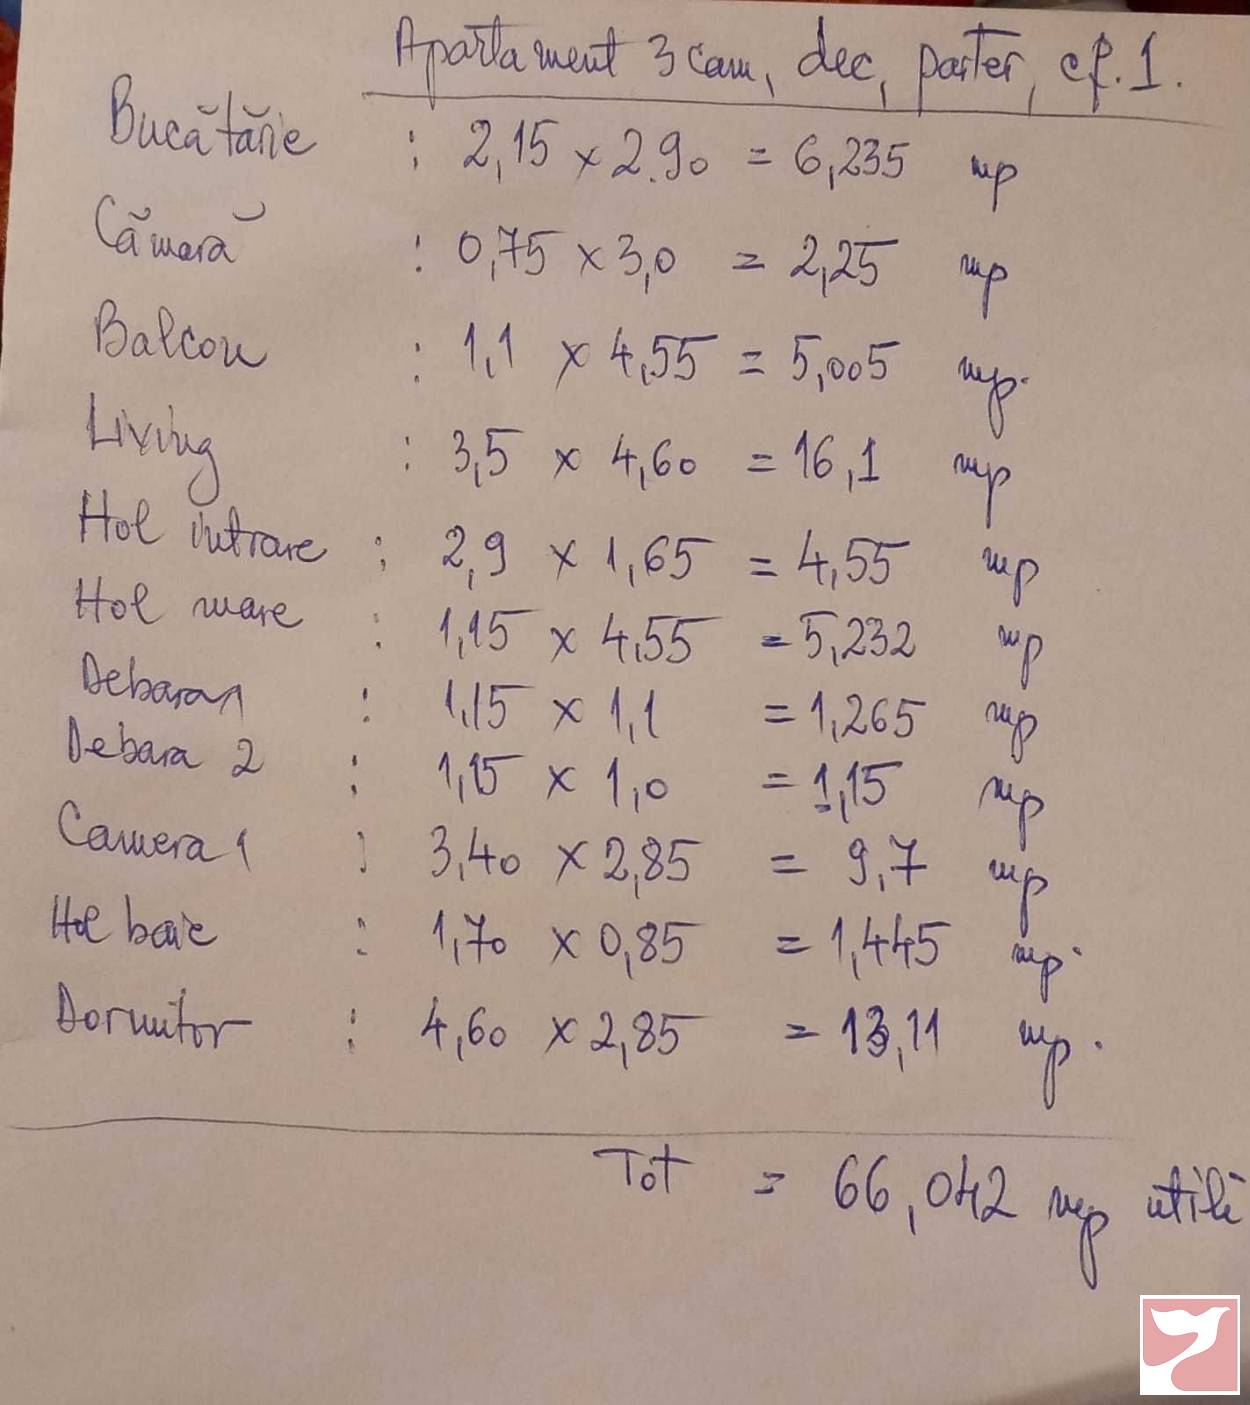 Apartament 3 cam, dec, parter, cf. 1.
Bucătărie : 2,15 x 2.90 = 6,235 mp
Cămară : 0,75 x 3,0 = 2,25 mp
Balcon : 1,1 x 4,55 = 5,005 mp.
Living : 3,5 x 4,60 = 16,1 mp
Hol intrare : 2,9 x 1,65 = 4,55 mp
Hol mare : 1,15 x 4,55 = 5,232 mp
Debara 1 : 1,15 x 1,1 = 1,265 mp
Debara 2 : 1,15 x 1,0 = 1,15 mp
Camera 1 : 3,40 x 2,85 = 9,7 mp
Hol baie : 1,70 x 0,85 = 1,445 mp.
Dormitor : 4,60 x 2,85 = 13,11 mp.
Tot = 66,042 mp utili